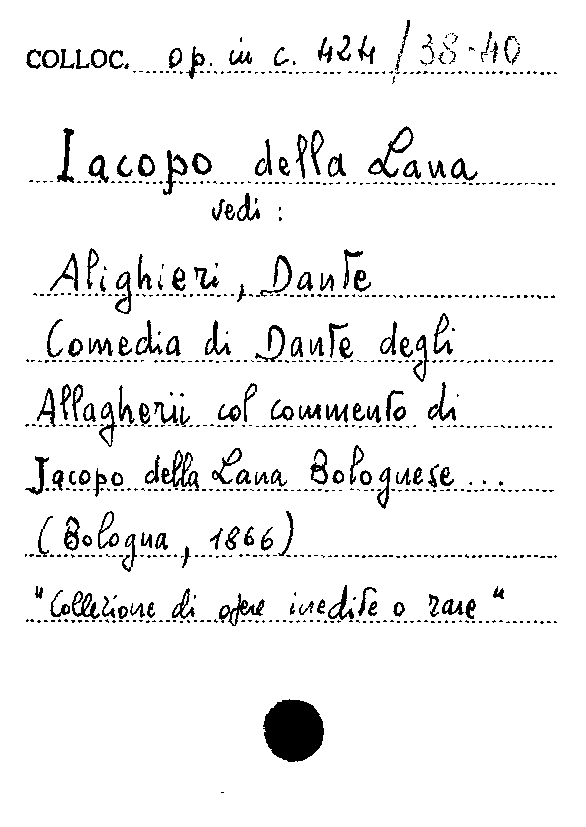 COLLOC. op. in c. 424/38-40
Iacopo della Lana
vedi :
Alighieri, Dante
Comedia di Dante degli
Allagherii col commento di
Jacopo della Lana Bolognese...
(Bologna, 1866)
"Collezione di opere inedite o rare"